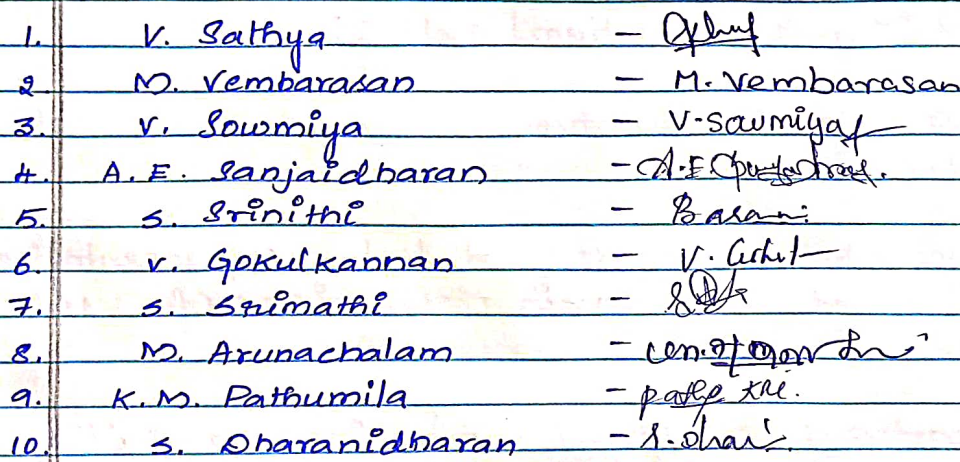 1. V. Sathya -
2 M. Vembarasan - M. Vembarasan
3. V. Sowmiya - V-Sowmiya
4. A. E. Sanjaidharan - A.E
5. S. Srinithi -
6. V. Gokulkannan - V.
7. S. Srimathi -
8. M. Arunachalam -
9. K. M. Pathumila -
10. S. Dharanidharan - S.